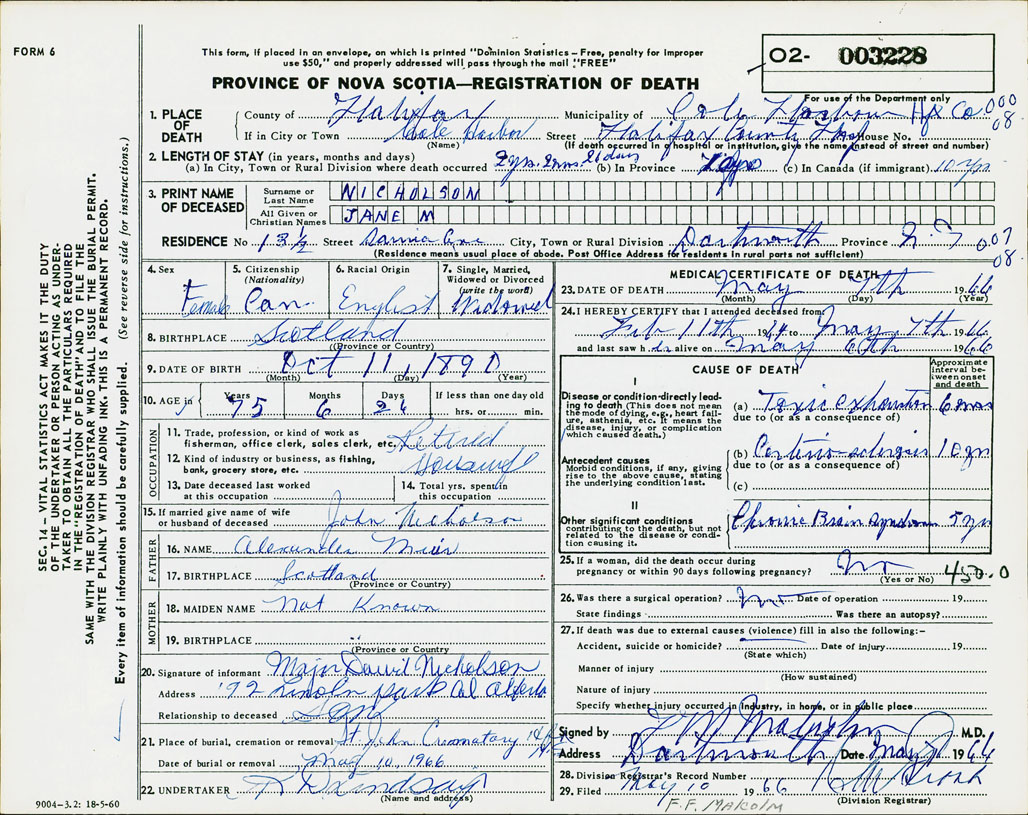 FORM 6
This form, if placed in an envelope, on which is printed "Dominion Statistics – Free, penalty for improper
use $50," and properly addressed will pass through the mail "FREE"
PROVINCE OF NOVA SCOTIA—REGISTRATION OF DEATH
02- 003228
For use of the Department only
1. PLACE OF DEATH
County of Halifax Municipality of Cole Harbour Hfx Co 000
If in City or Town Cole Harbor Street Halifax County House No. 08.
(Name) (If death occurred in a hospital or institution, give the name instead of street and number)
2. LENGTH OF STAY (in years, months and days)
(a) In City, Town or Rural Division where death occurred 2 yrs. 2 mns. 26 days (b) In Province (c) In Canada (if immigrant) 10 yrs
3. PRINT NAME OF DECEASED
Surname or Last Name NICHOLSON
All Given or Christian Names JANE M
RESIDENCE No 13½ Street City, Town or Rural Division Dartmouth Province N.S 007
(Residence means usual place of abode. Post Office Address for residents in rural parts not sufficient) 08.
4. Sex Female
5. Citizenship (Nationality) Can.
6. Racial Origin English
7. Single, Married, Widowed or Divorced (write the word) Widowed
8. BIRTHPLACE Scotland
(Province or Country)
9. DATE OF BIRTH Oct 11, 1890
(Month) (Day) (Year)
10. AGE in Years 75 Months 6 Days 26 If less than one day old
hrs. or min.
OCCUPATION
11. Trade, profession, or kind of work as
fisherman, office clerk, sales clerk, etc. Retired
12. Kind of industry or business, as fishing,
bank, grocery store, etc. Housewife
13. Date deceased last worked
at this occupation
14. Total yrs. spent in
this occupation
15. If married give name of wife
or husband of deceased John Nicholson
FATHER
16. NAME Alexander Muir
17. BIRTHPLACE Scotland
(Province or Country)
MOTHER
18. MAIDEN NAME Not Known
19. BIRTHPLACE "
(Province or Country)
20. Signature of informant Major David Nicholson
Address 92 Lincoln Park Cal Alberta
Relationship to deceased Son
21. Place of burial, cremation or removal St. John Crematory
Date of burial or removal May 10, 1966
22. UNDERTAKER Lindsay
(Name and address)
9004—3.2: 18-5-60
MEDICAL CERTIFICATE OF DEATH
23. DATE OF DEATH May 7th 1966
(Month) (Day) (Year)
24. I HEREBY CERTIFY that I attended deceased from:
Feb 11th 1964 to May 7th 1966
and last saw her alive on May 6th 1966
CAUSE OF DEATH
Approximate interval between onset and death
I
Disease or condition directly leading to death (This does not mean
the mode of dying, e.g., heart failure, asthenia, etc. It means the
disease, injury, or complication
which caused death.)
(a) Toxic exhaustion 6 mos
due to (or as a consequence of)
Antecedent causes
Morbid conditions, if any, giving
rise to the above cause, stating
the underlying condition last.
(b) 10 yrs
due to (or as a consequence of)
(c)
II
Other significant conditions
contributing to the death, but not
related to the disease or condition causing it.
Chronic Brain Syndrome 5 yrs
25. If a woman, did the death occur during
pregnancy or within 90 days following pregnancy? No 450.0
(Yes or No)
26. Was there a surgical operation? No Date of operation 19
State findings Was there an autopsy?
27. If death was due to external causes (violence) fill in also the following:—
Accident, suicide or homicide? Date of injury 19
(State which)
Manner of injury
(How sustained)
Nature of injury
Specify whether injury occurred in industry, in home, or in public place
Signed by M.D.
Address Dartmouth Date May 1966
28. Division Registrar's Record Number
29. Filed May 10 1966
(Division Registrar)
F.F. MALCOLM
SEC. 14 – VITAL STATISTICS ACT MAKES IT THE DUTY
OF THE UNDERTAKER OR PERSON ACTING AS UNDER-
TAKER TO OBTAIN ALL THE PARTICULARS REQUIRED
IN THE "REGISTRATION OF DEATH" AND TO FILE THE
SAME WITH THE DIVISION REGISTRAR WHO SHALL ISSUE THE BURIAL PERMIT.
WRITE PLAINLY WITH UNFADING INK. THIS IS A PERMANENT RECORD.
Every item of information should be carefully supplied. (See reverse side for instructions.)